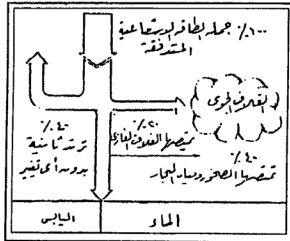 ١٠٠٪ جملة الطاقة الإشعاعية
المتدفقة
الغلاف الجوى
٤٠٪
ترتد ثانية
بدون أى تغيير
٢٠٪
تمتصها الغلاف الغازى
٤٠٪
تمتصها الصخور ومياه البحار
اليابس
الماء